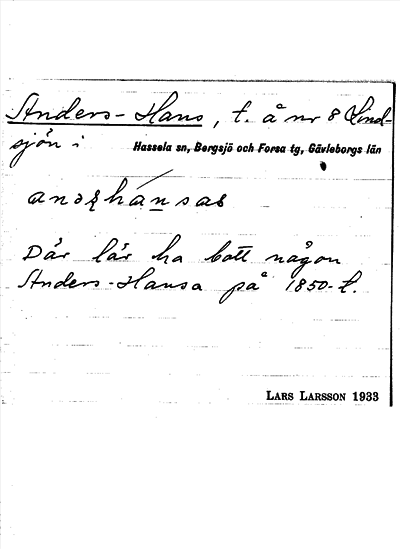 Anders-Hans, t. å nr 8 Lind-
sjön i Hassela sn, Bergsjö och Forsa tg, Gävleborgs län
Där lär ha bott någon
Anders-Hansa på 1850-t.
LARS LARSSON 1933